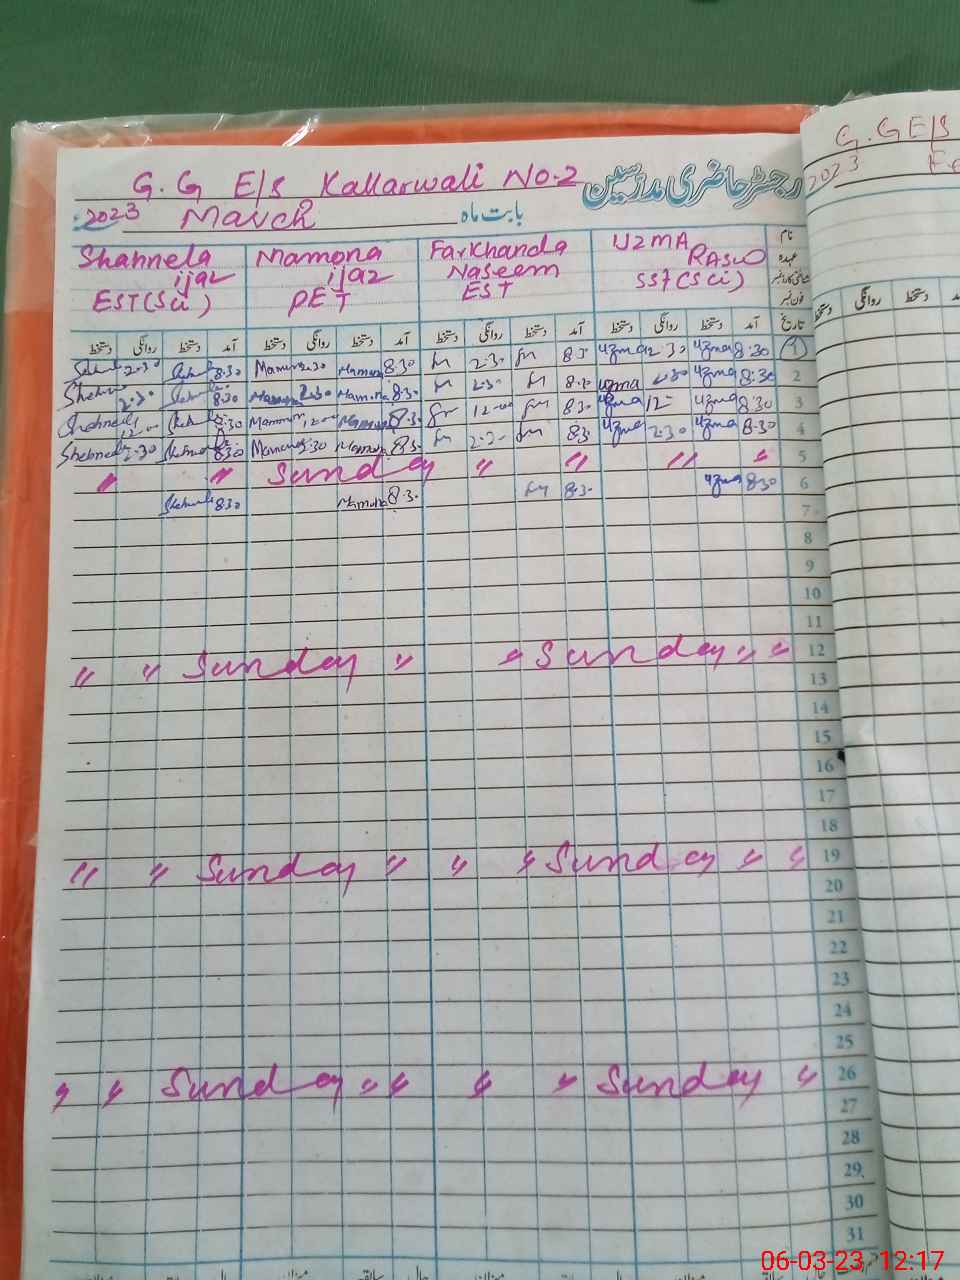 G. G E/S Kallarwali No-2 رجسٹر حاضری مدرسین
2023 March بابت ماہ
G. GE/S
2023 Fe
Shahnela ijaz EST(Sci)
Mamona ijaz PET
Farkhanda Naseem EST
UZMA RASUO SST(SCi)
نام
عہدہ
فون نمبر
تاریخ
دستخط روانگی دستخط آمد دستخط روانگی دستخط آمد دستخط روانگی دستخط آمد دستخط روانگی دستخط آمد
دستخط روانگی دستخط
2:30 8:30 Mamona 2:30 Mamona 8:30 fn 2:30 fn 8:30 uzma 2:30 uzma 8:30 1
2:30 8:30 Mamona 2:30 Mamona 8:30 fn 2:30 fn 8:30 uzma 2:30 uzma 8:30 2
12:00 8:30 Mamona 12:00 Mamona 8:30 fn 12:00 fn 8:30 uzma 12 uzma 8:30 3
2:30 8:30 Mamona 2:30 Mamona 8:30 fn 2:30 fn 8:30 uzma 2:30 uzma 8:30 4
" " Sunday " " " " 5
8:30 Mamona 8:30 fn 8:30 uzma 8:30 6
7
8
9
10
11
" " Sunday " " Sunday " " 12
13
14
15
16
17
18
" " Sunday " " " Sunday " " 19
20
21
22
23
24
25
" " Sunday " " " " Sunday " 26
27
28
29
30
31
06-03-23, 12:17